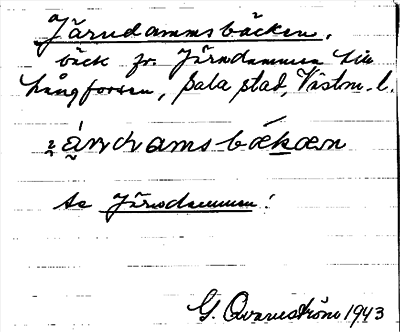 Järndammsbäcken,
bäck fr. Järndammen till
Långforsen, Sala stad, Västm. l.
ạ́rndamsbækæn
se Järndammen!
G. Qvarnström 1943